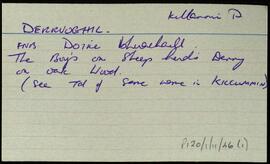 Killannin P
DERRYOGHIL.
FNB Doire Bhuachaill
The Boy's or Sheep herd's Derry
or oak Wood.
(see Td of same name in KILCUMMIN)
P120/1/1/46 (1)